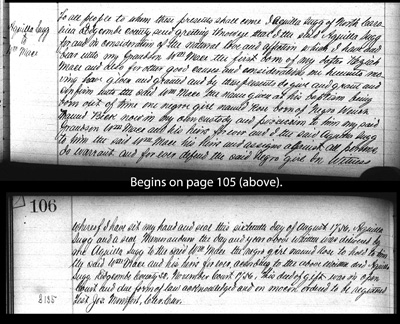 Aquilla Sugg
to
Wm Mace
To all people to whom these presents shall come I Aquilla Sugg of North Caro-
lina Edgcombe County send greeting know ye that I the said Aquilla Sugg
for and in consideration of the natural love and affection which I have and
bear unto my Grandson Wm Mace the first born of my
Mace and also for other good causes and considerations me hereunto mo-
ving have given and granted and by these presents do give and grant and
confirm unto the said Wm Mace the name given at his baptism being
born out of time one negro girl named born of Negro
named now in my own custody and possession to him my said
Grandson Wm Mace and his heirs for ever and I the said Aquilla Sugg
to him the said Wm Mace his heirs and assigns against all persons
do warrant and for ever defend the said negro girl In Witness
Begins on page 105 (above).
106
whereof I have set my hand and seal this sixteenth day of August 1756. Aquilla
Sugg and a seal Memorandum the day and year above written was delivered by
me Aquilla Sugg to the said Wm Mace the negro girl named to hold to him
the said Wm Mace and his heirs for ever, according to the above Aquilla
Sugg. Edgcombe County November Court 1756. This deed of gift was in open
Court and due form of law acknowledged and on motion ordered to be registered
Test Jos Montfort, Cler Cur.